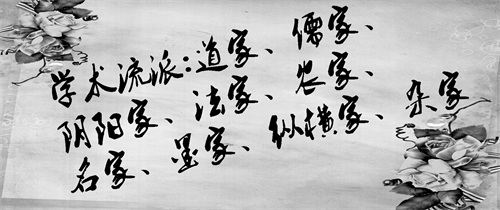 学术流派:道家、儒家、
阴阳家、法家、农家、
名家、墨家、纵横家、杂家